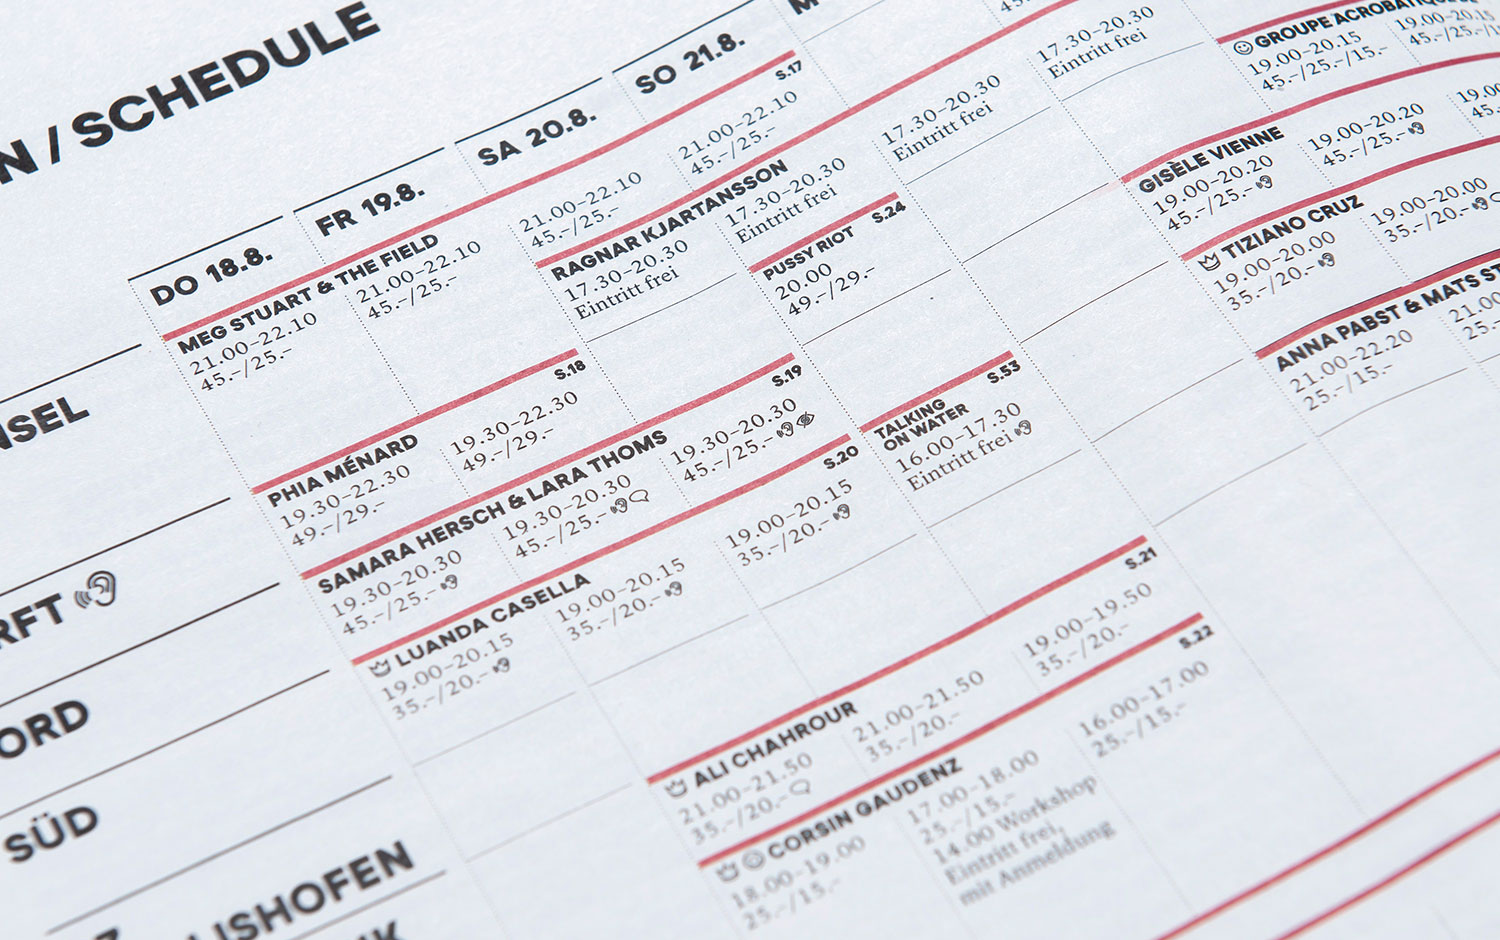 N / SCHEDULE
DO 18.8.
FR 19.8.
SA 20.8.
SO 21.8.
MEG STUART & THE FIELD
S.17
21.00–22.10
45.–/25.–
21.00–22.10
45.–/25.–
21.00–22.10
45.–/25.–
21.00–22.10
45.–/25.–
RAGNAR KJARTANSSON
17.30–20.30
Eintritt frei
17.30–20.30
Eintritt frei
17.30–20.30
Eintritt frei
17.30–20.30
Eintritt frei
PUSSY RIOT
S.24
20.00
49.–/29.–
GROUPE ACROBATIQUE
19.00–20.15
45.–/25.–/15.–
19.00–20.15
45.–/25.–/1
GISÈLE VIENNE
19.00–20.20
45.–/25.–
19.00–20.20
45.–/25.–
19.00
45.
TIZIANO CRUZ
19.00–20.00
35.–/20.–
19.00–20.00
35.–/20.–
ANNA PABST & MATS ST
21.00–22.20
25.–/15.–
21.00
25.–
NSEL
PHIA MÉNARD
S.18
19.30–22.30
49.–/29.–
19.30–22.30
49.–/29.–
SAMARA HERSCH & LARA THOMS
S.19
19.30–20.30
45.–/25.–
19.30–20.30
45.–/25.–
19.30–20.30
45.–/25.–
TALKING
ON WATER
S.53
16.00–17.30
Eintritt frei
RFT
LUANDA CASELLA
S.20
19.00–20.15
35.–/20.–
19.00–20.15
35.–/20.–
19.00–20.15
35.–/20.–
ORD
ALI CHAHROUR
S.21
21.00–21.50
35.–/20.–
21.00–21.50
35.–/20.–
19.00–19.50
35.–/20.–
SÜD
CORSIN GAUDENZ
S.22
18.00–19.00
25.–/15.–
17.00–18.00
25.–/15.–
14.00 Workshop
Eintritt frei,
mit Anmeldung
16.00–17.00
25.–/15.–
LISHOFEN
IK